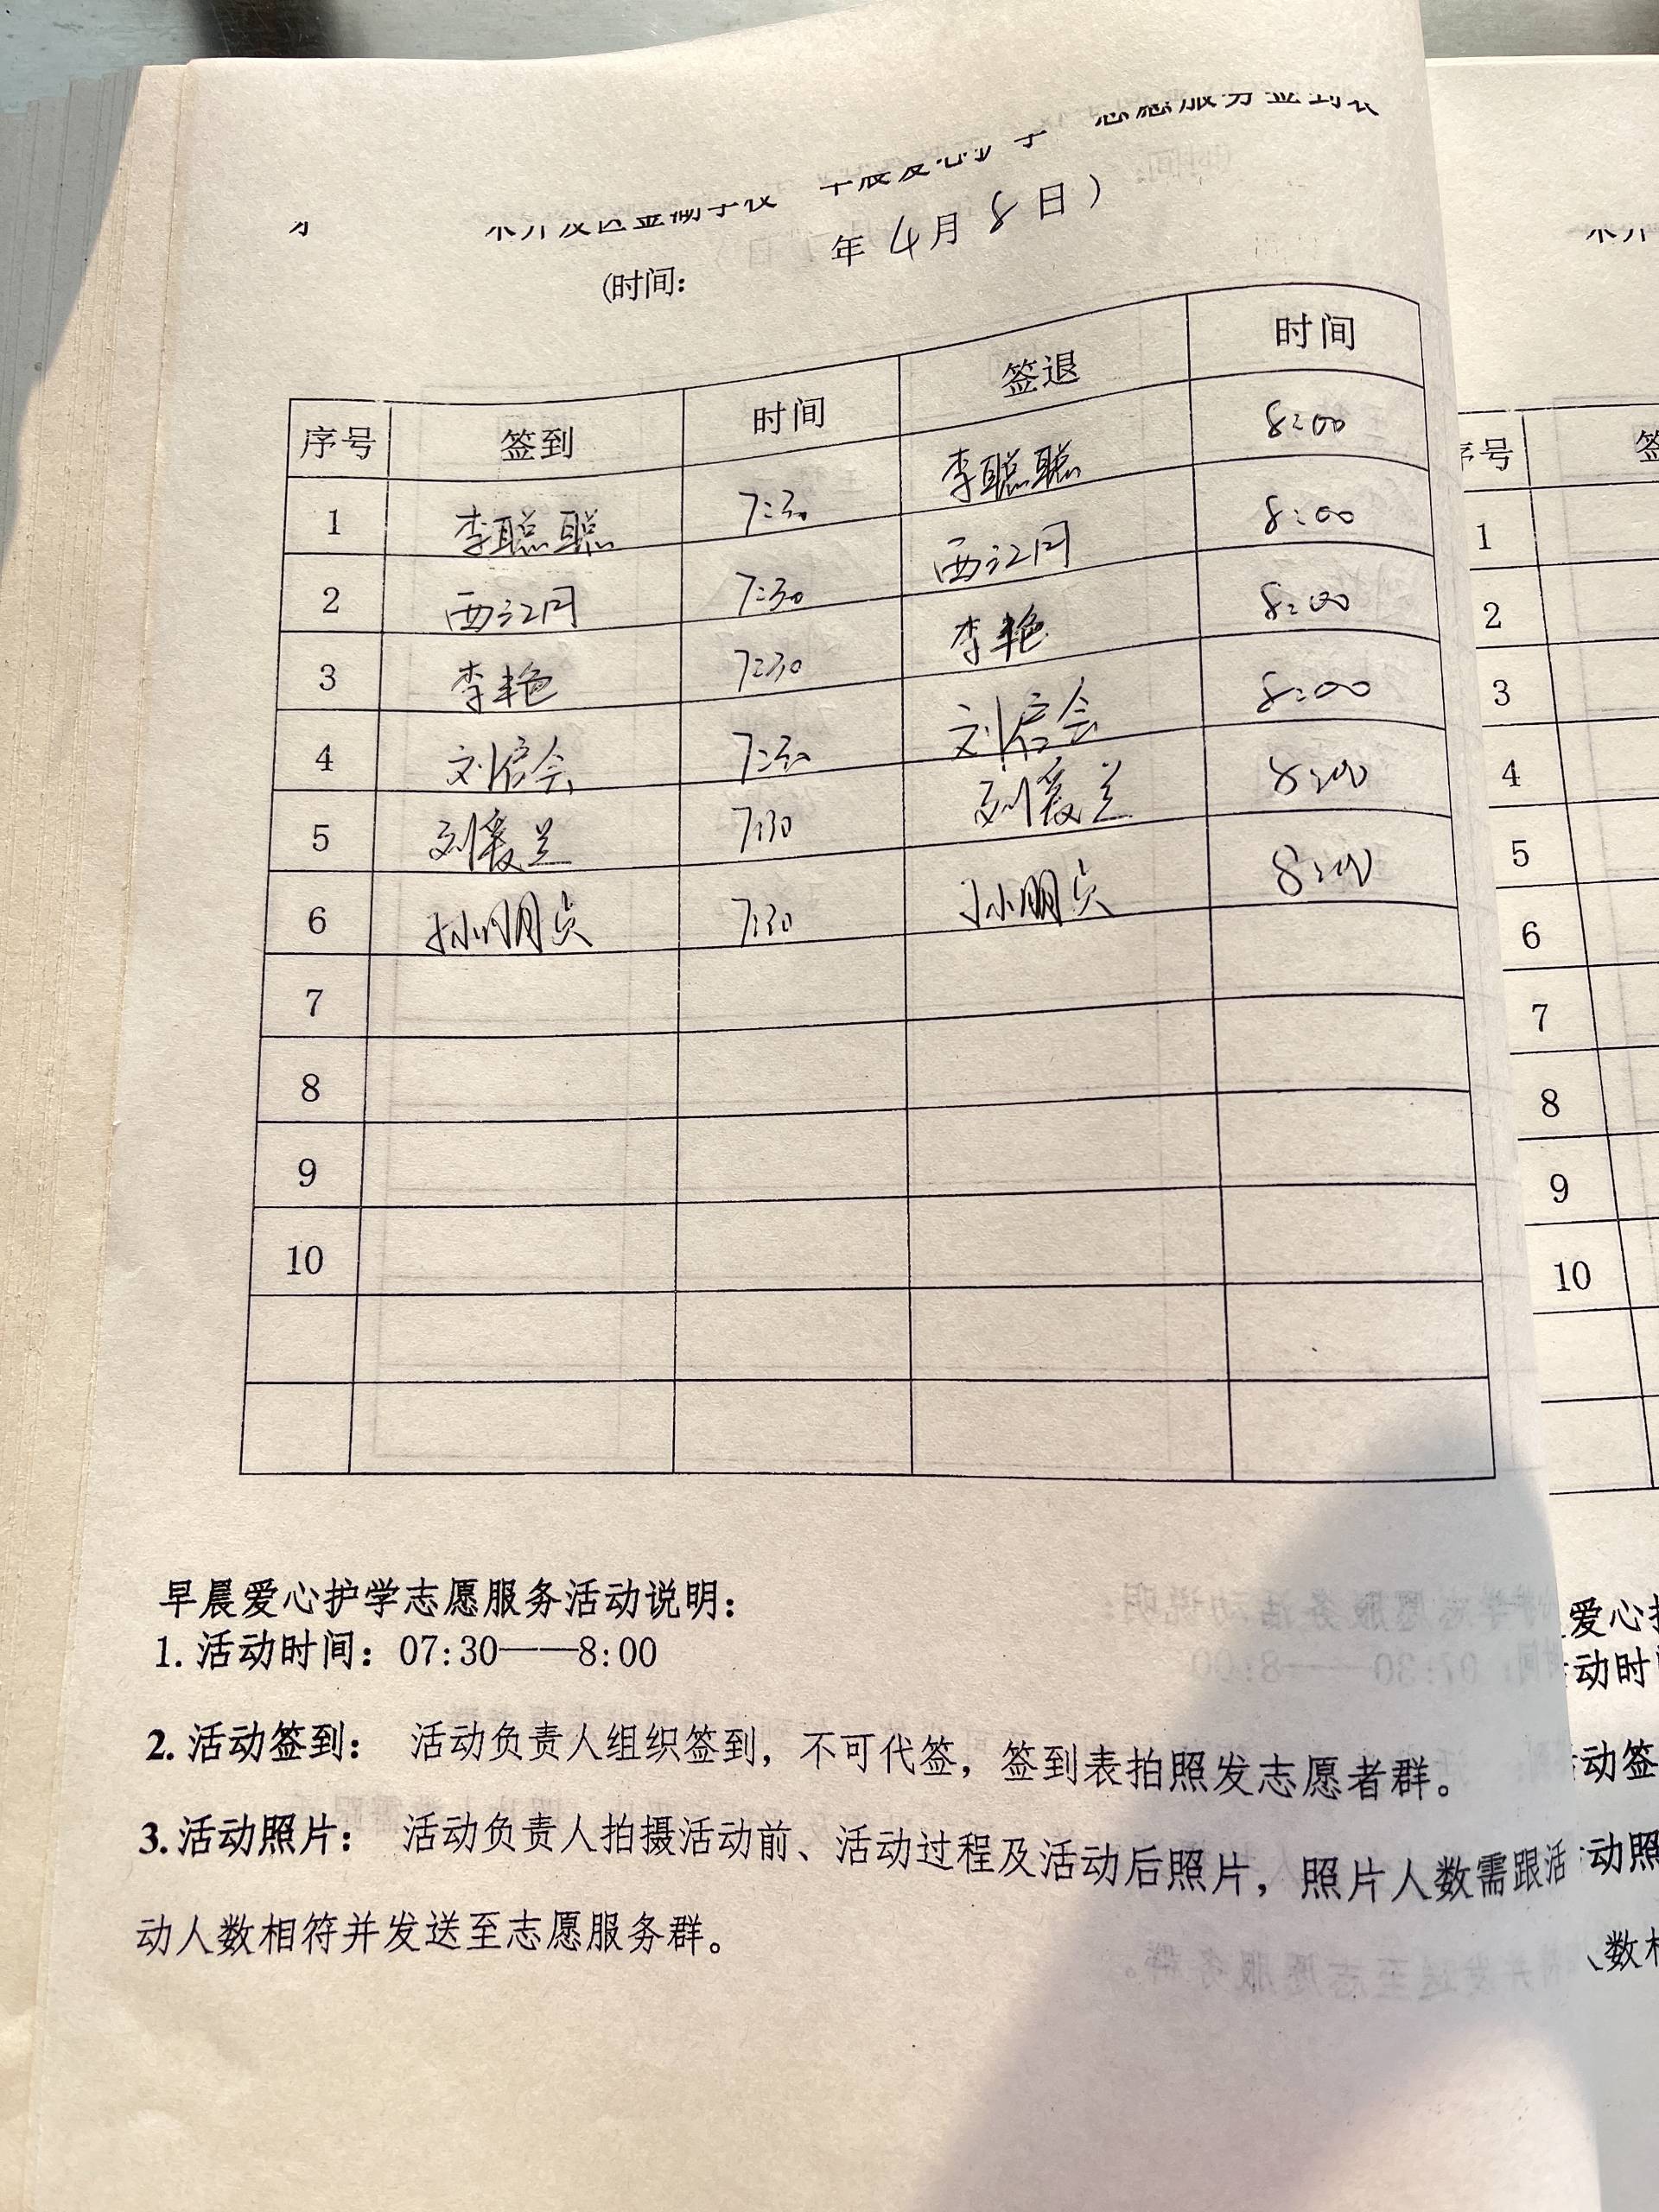 (时间: 年4月8日)
序号 签到 时间 签退 时间
1 李聪聪 7:30 李聪聪 8:00
2 西江月 7:30 西江月 8:00
3 李艳 7:30 李艳 8:00
4 刘启会 7:30 刘启会 8:00
5 刘爱兰 7:30 刘爱兰 8:00
6 孙朋贞 7:30 孙朋贞 8:00
7
8
9
10
早晨爱心护学志愿服务活动说明：
1. 活动时间：07:30——8:00
2. 活动签到： 活动负责人组织签到，不可代签，签到表拍照发志愿者群。
3. 活动照片： 活动负责人拍摄活动前、活动过程及活动后照片，照片人数需跟活
动人数相符并发送至志愿服务群。
序号
1
2
3
4
5
6
7
8
9
10
爱心
动时
动签
动照
数相